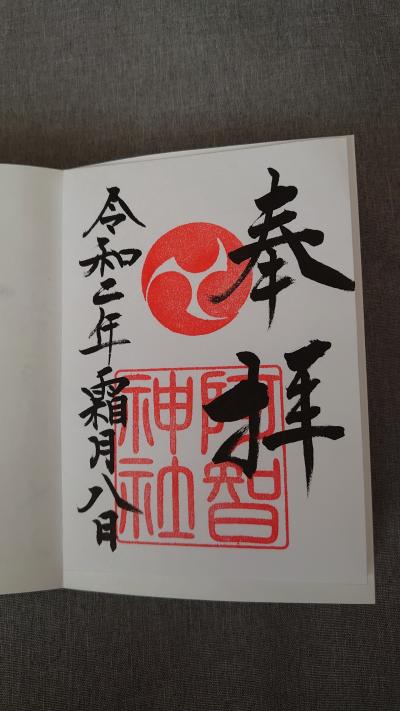 奉拝
阿智
神社
令和二年霜月八日